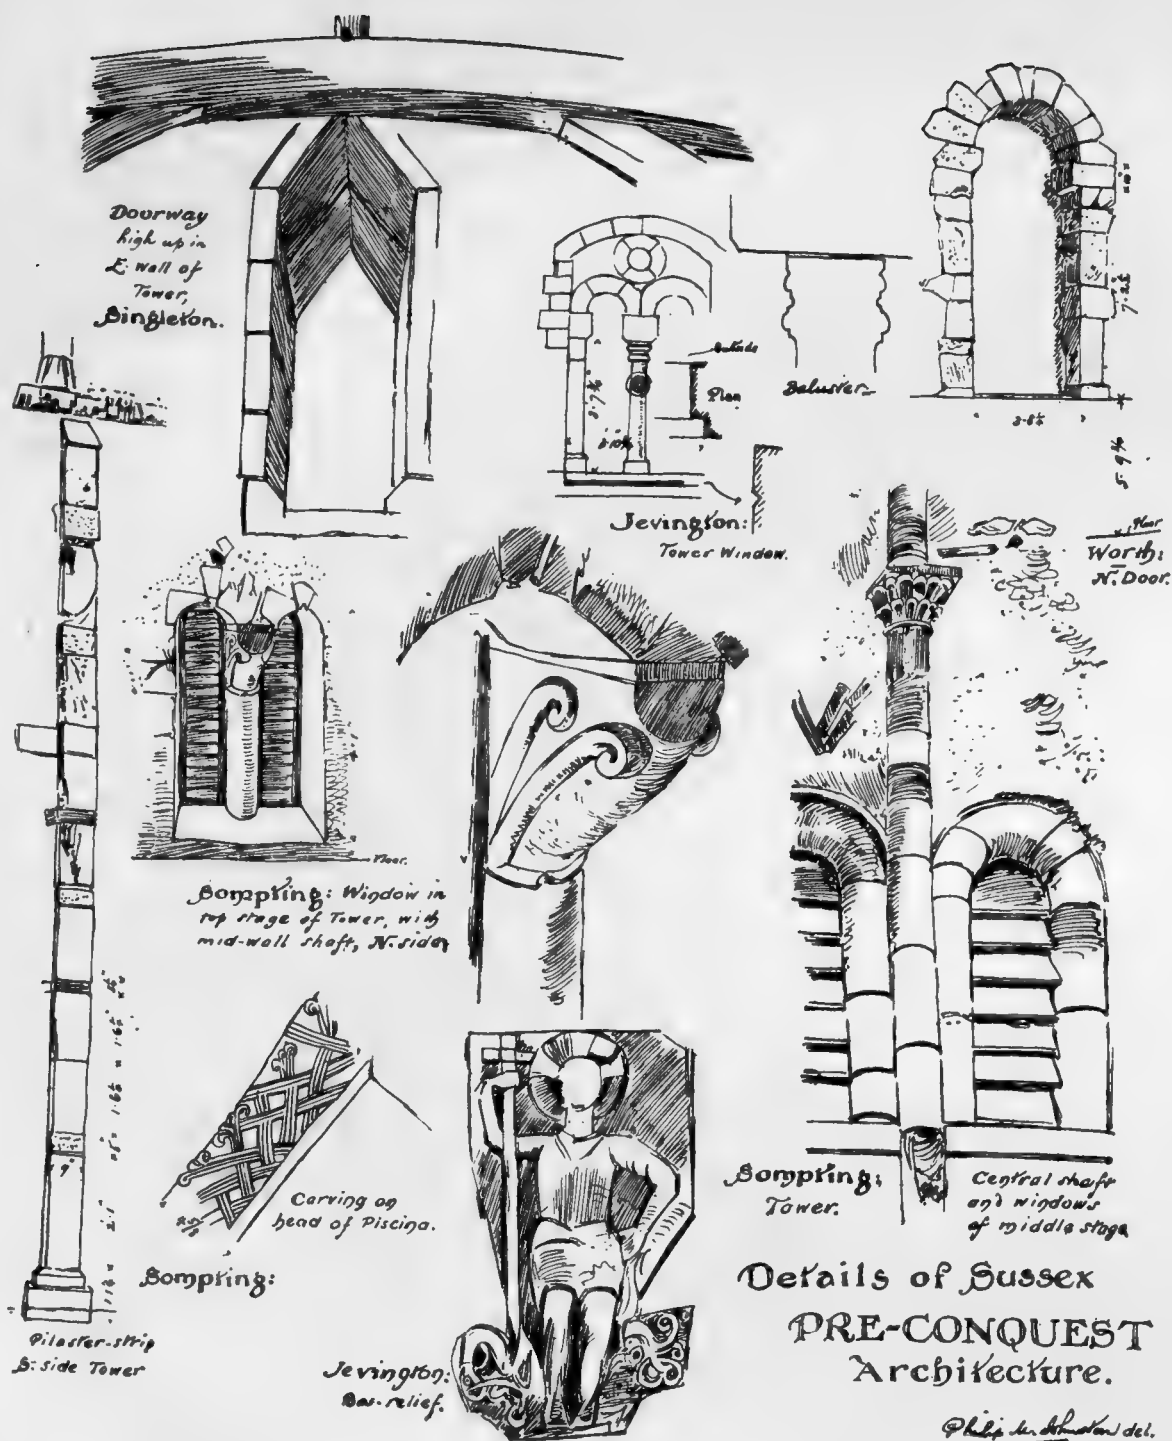 Doorway
high up in
E. wall of
Tower,
Singleton.
Plan
Baluster
Jevington:
Tower Window.
Floor
Worth:
N. Door.
Floor.
Sompting: Window in
top stage of Tower, with
mid-wall shaft, N. side
Carving on
head of Piscina.
Sompting:
Pilaster-strip
S. side Tower
Jevington:
Bas-relief.
Sompting:
Tower.
Central shaft
and windows
of middle stage
Details of Sussex
PRE-CONQUEST
Architecture.
Philip M. Johnston del.